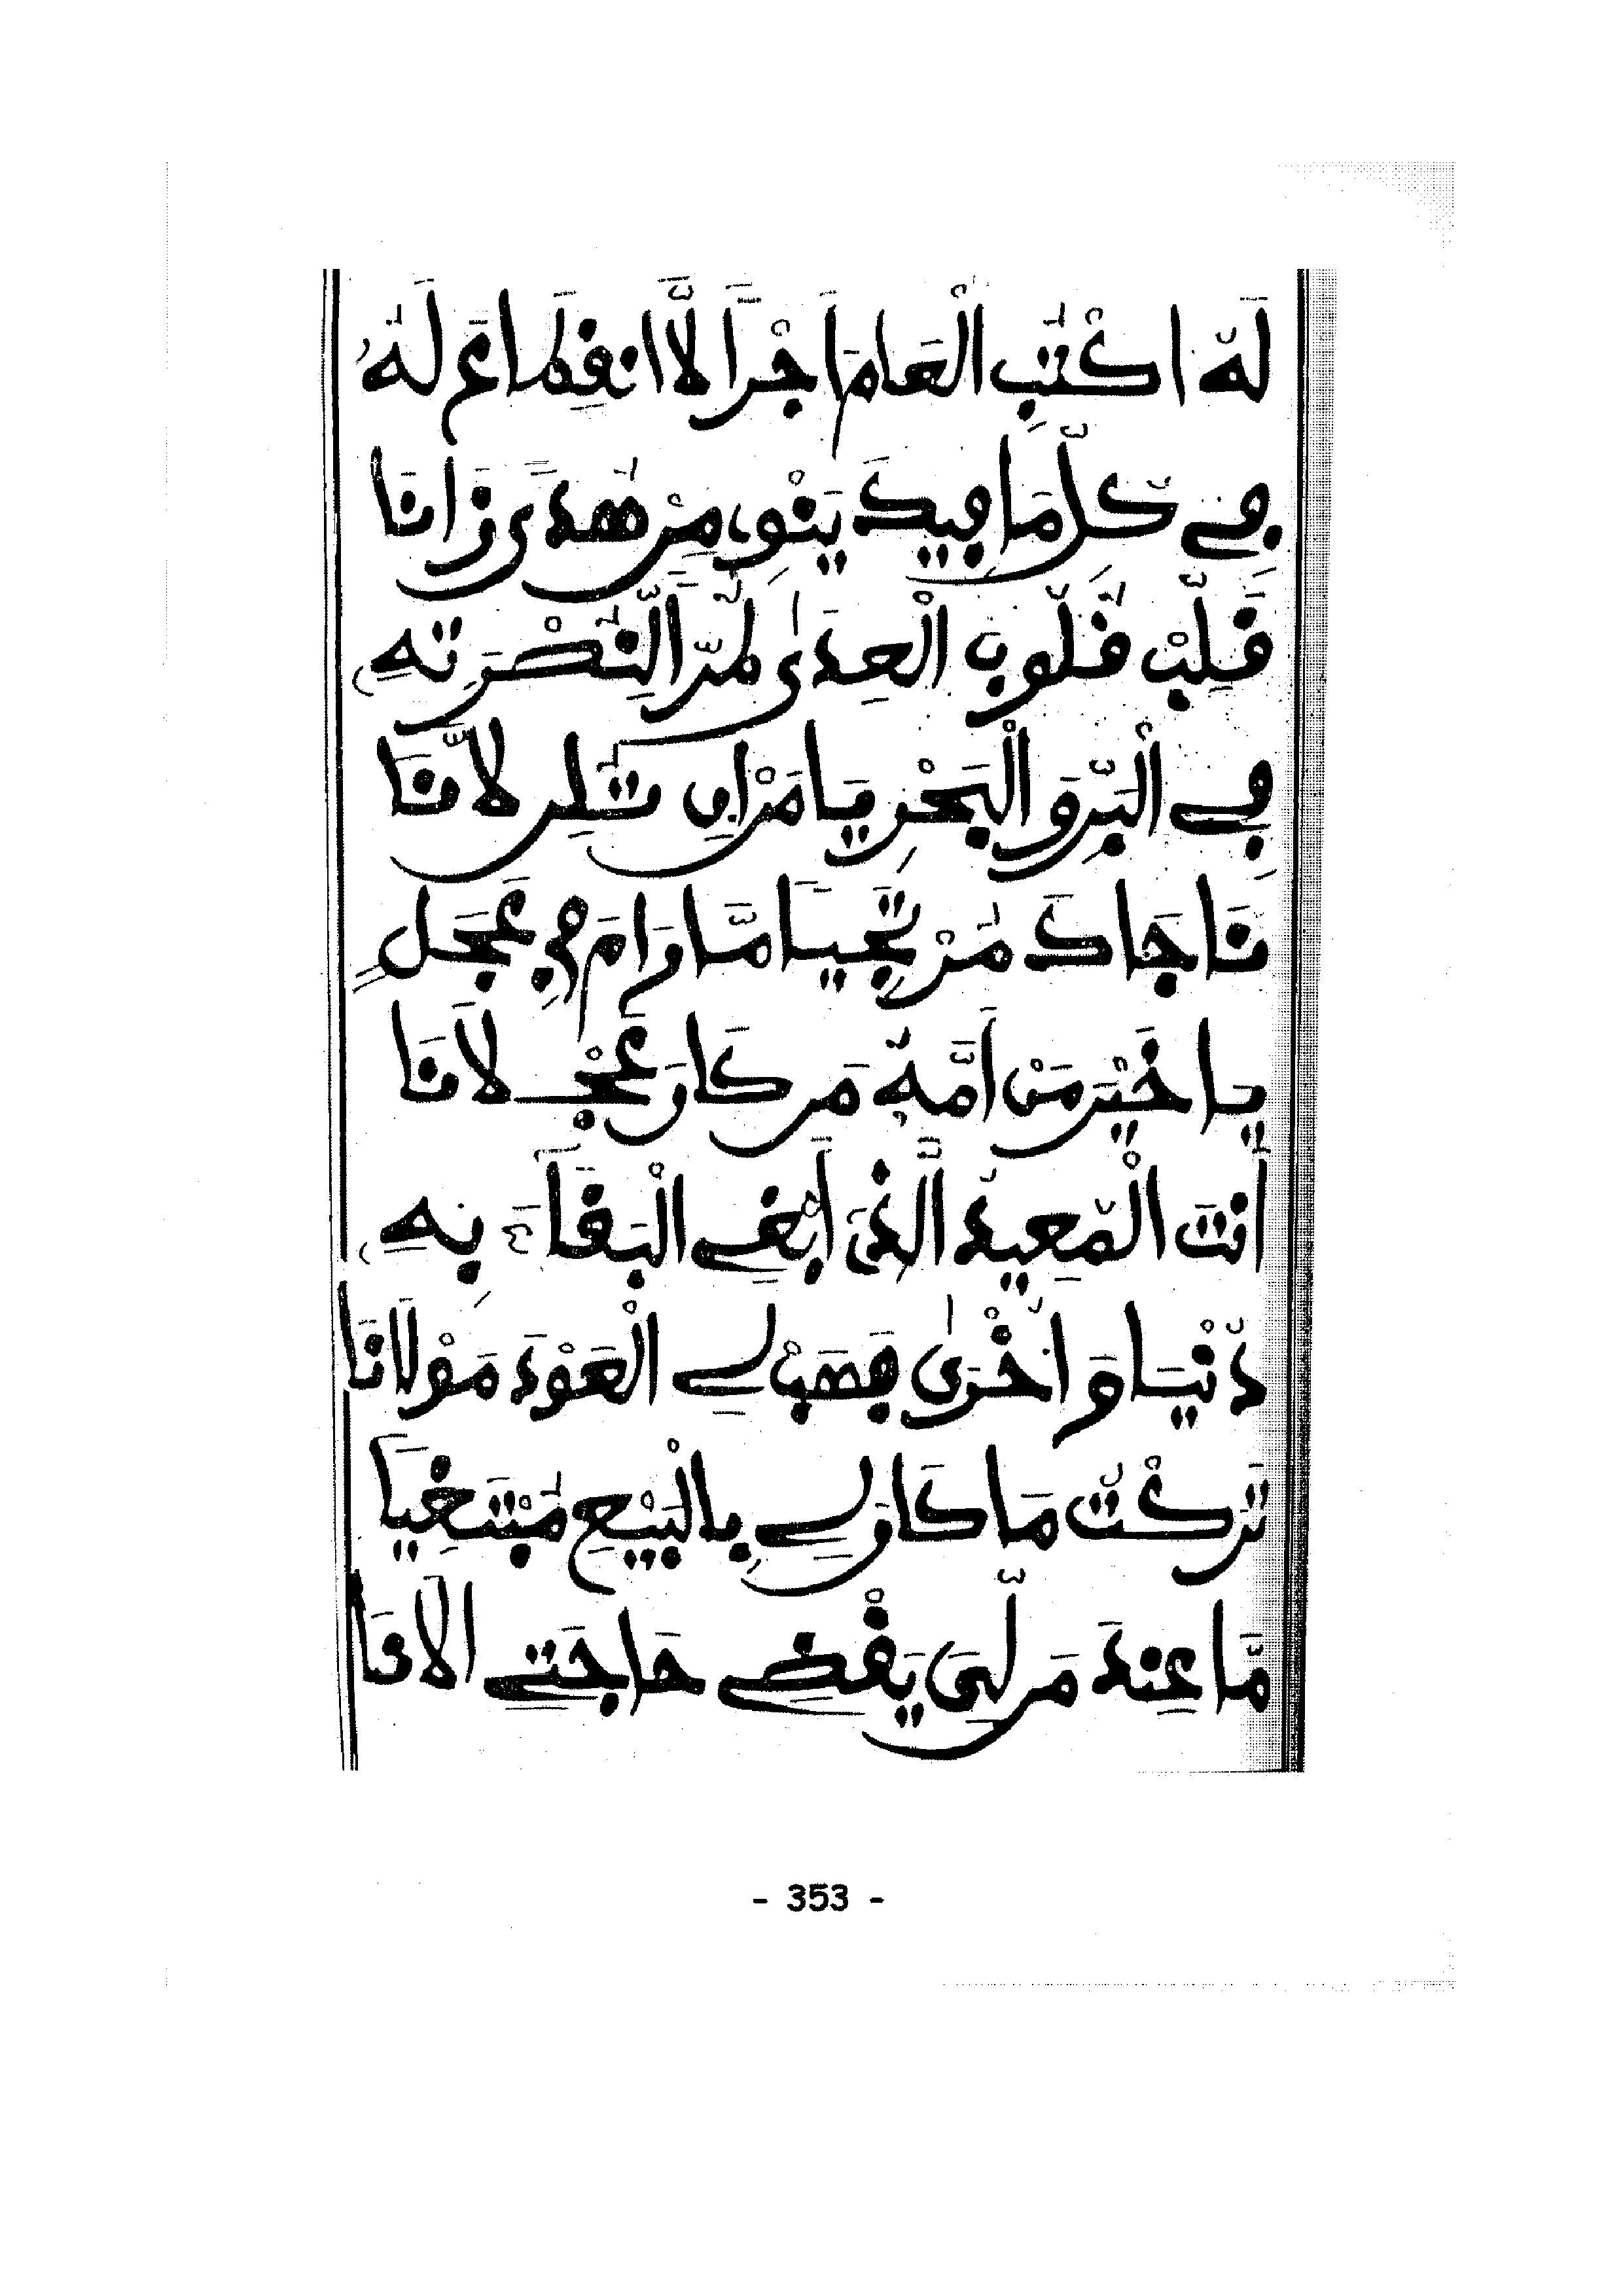 لَهُ اكْتُبِ الْعَامَ اجْرًا لَّا انفِطَاعَ لَهُ
فِي كُلِّ مَا فِيكَ يَنْوِ، مَنْ هُدًى زَانَا
فَلِّبْ فُلُوبَ الْعِدَىٰ طُرًّا لِنُصْرَتِهِ
فِي الْبَرِّ وَالْبَحْرِ يَا مَنْ اِن تُطِرْ لَانَا
نَاجَاكَ مَنْ تَحْيَا مَّا رَامَ فِي عَجَلٍ
يَا خَيْرَ مَنْ أَمَّهُ مَن كَانَ عَجْلَانَا
أَنتَ الْمُعِيدُ الَّذِي أَبْغِي الْبَفَاءَ بِهِ
دُنْيَا وَ اُخْرَىٰ فَهَبْ لِي الْعَوْدَ مَوْلَانَا
تَرَكْتُ مَا كَانَ لِي بِالْبَيْعِ مُبْتَغِيًا
مَّا عِندَ مَن لِّيَ يَفْضِي حَاجَتِي الَانَا
- 353 -